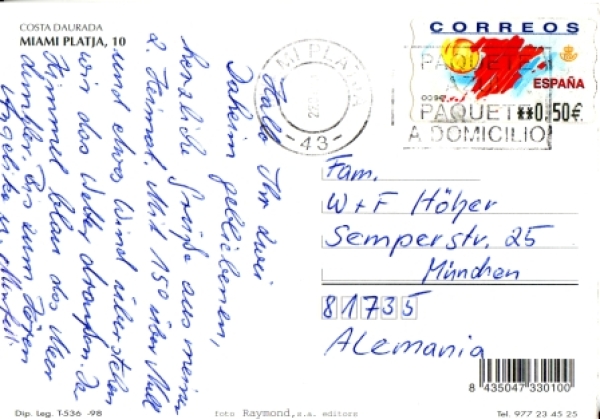 COSTA DAURADA
MIAMI PLATJA, 10
Hallo Ihr zwei
Daheim gebliebenen,
herzliche Grüße aus meiner
2. Heimat. Mit 15° über Null
und etwas Wind überstehen
wir das Wetter draußen. Da
Himmel blau das Meer
dunkler. Bis zum
Angelika u.
MI PLATJA
-43-
CORREOS
ESPAÑA
**0,50€
PAQUETE
A
PAQUETE
A DOMICILIO
Fam.
W+F Höher
Semperstr. 25
München
81735
Alemania
8 435047 330100
Dip. Leg. T-536 -98
foto Raymond,s.a. editors
Tel. 977 23 45 25